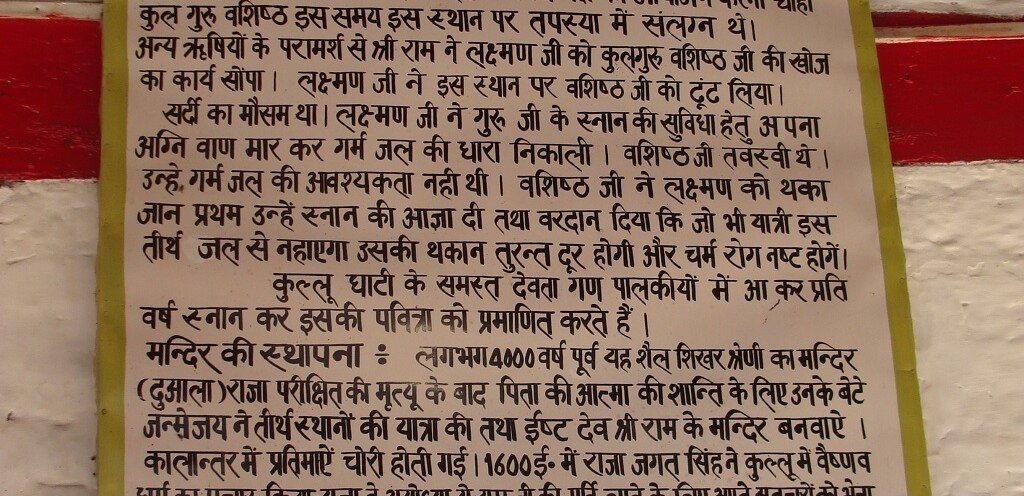 कुल गुरु वशिष्ठ इस समय इस स्थान पर तपस्या में संलग्न थे।
अन्य ऋषियों के परामर्श से श्री राम ने लक्ष्मण जी को कुलगुरु वशिष्ठ जी की खोज
का कार्य सोंपा। लक्ष्मण जी ने इस स्थान पर वशिष्ठ जी को ढूंट लिया।
सर्दी का मौसम था। लक्ष्मण जी ने गुरु जी के स्नान की सुविधा हेतु अपना
अग्नि वाण मार कर गर्म जल की धारा निकाली। वशिष्ठ जी तवस्वी थे।
उन्हे गर्म जल की आवश्यकता नही थी। वशिष्ठ जी ने लक्ष्मण को थका
जान प्रथम उन्हें स्नान की आज्ञा दी तथा वरदान दिया कि जो भी यात्री इस
तीर्थ जल से नहाएगा उसकी थकान तुरन्त दूर होगी और चर्म रोग नष्ट होगें।
कुल्लू घाटी के समस्त देवता गण पालकीयों में आ कर प्रति
वर्ष स्नान कर इसकी पवित्रा को प्रमाणित करते हैं।
मन्दिर की स्थापना ÷ लगभग 4000 वर्ष पूर्व यह शैल शिखर श्रेणी का मन्दिर
(दुआला) राजा परीक्षित की मृत्यू के बाद पिता की आत्मा की शान्ति के लिए उनके बेटे
जन्मेजय ने तीर्थ स्थानों की यात्रा की तथा ईष्ट देव श्री राम के मन्दिर बनवाऐ।
कालान्तर में प्रतिमाऐं चोरी होती गई। 1600 ई॰ में राजा जगत सिंह ने कुल्लू में वैष्णव